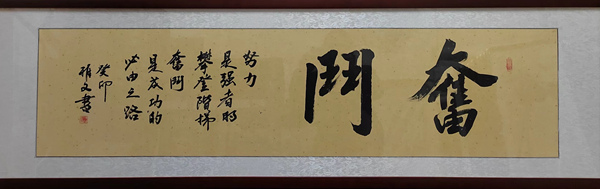 奮鬥
努力
是强者的
攀登階梯
奮鬥
是成功的
必由之路
癸卯